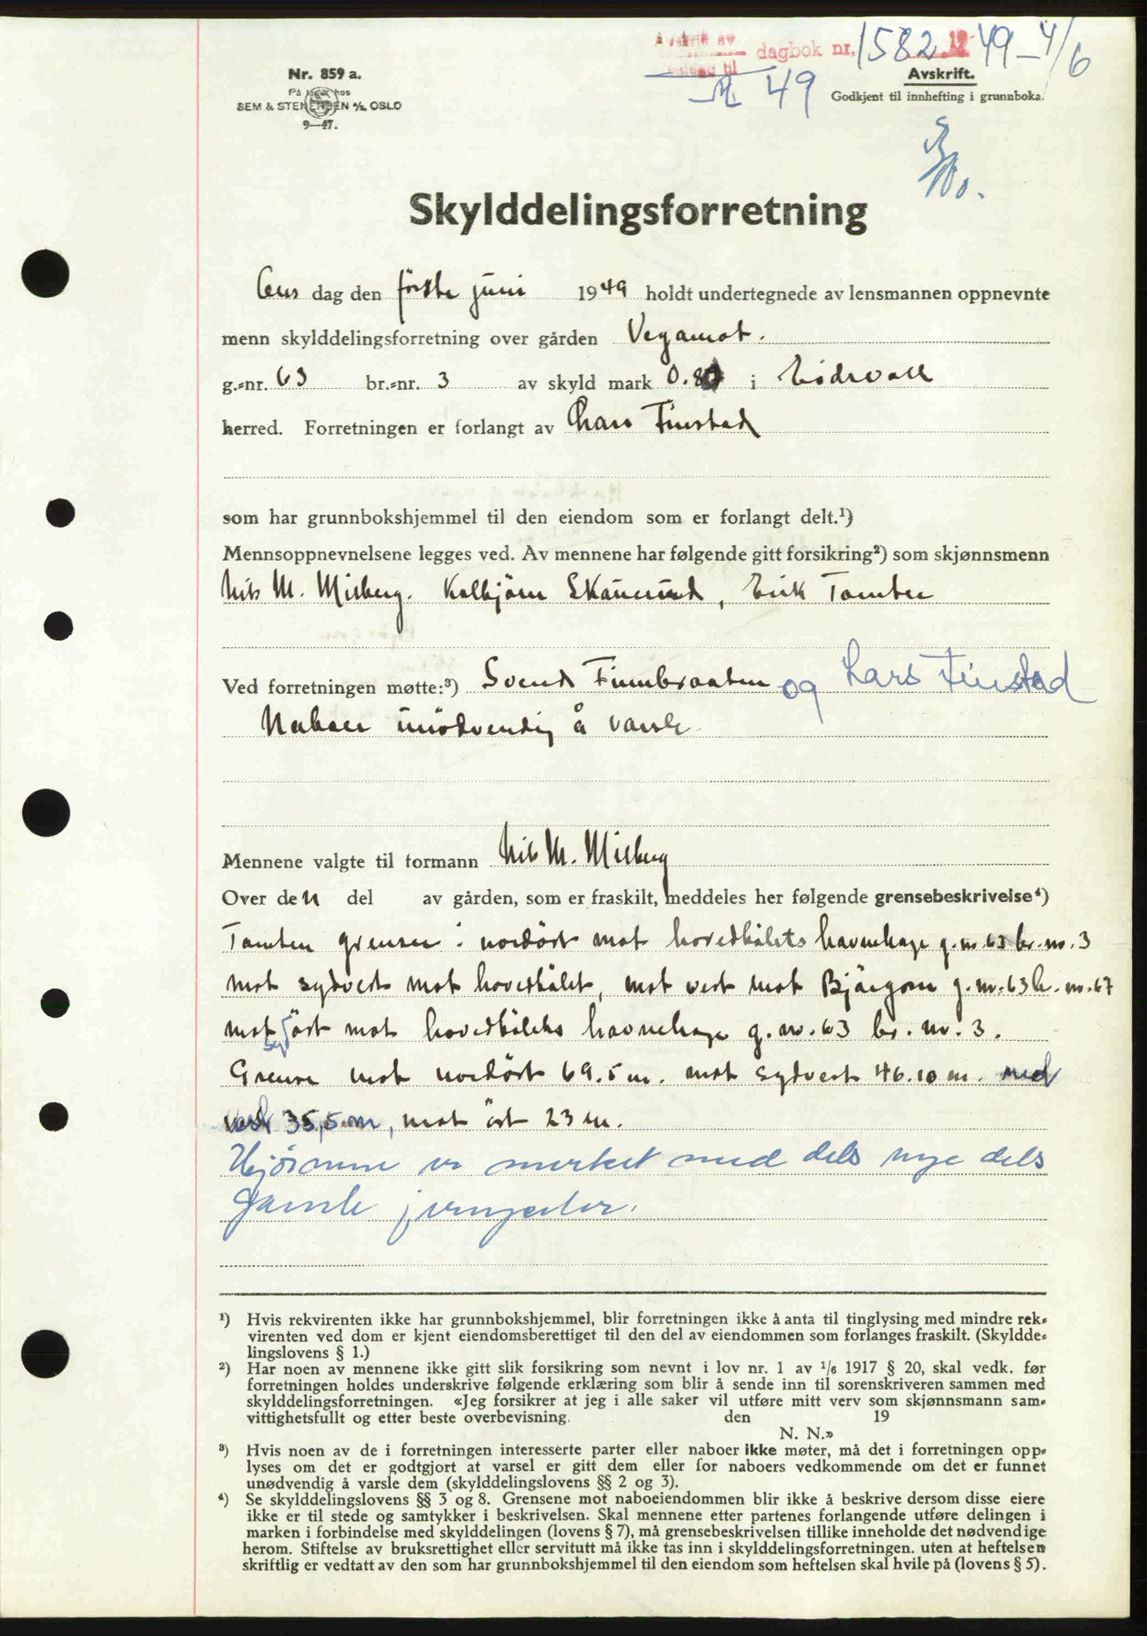 dagbok nr. 1582 49 - 4/6
49
Nr. 859 a.
Avskrift.
SEM & STENERSEN A/S, OSLO
Godkjent til innhefting i grunnboka.
9—47.
Skylddelingsforretning
dag den første juni 1949 holdt undertegnede av lensmannen oppnevnte
menn skylddelingsforretning over gården Vegamot.
g.-nr. 63 br.-nr. 3 av skyld mark 0.80 i Eidsvoll
herred. Forretningen er forlangt av Lars Finstad
som har grunnbokshjemmel til den eiendom som er forlangt delt.¹)
Mennsoppnevnelsene legges ved. Av mennene har følgende gitt forsikring²) som skjønnsmenn
Nils M. Misberg. Kolbjørn Skauerud, Erik Tomter
Ved forretningen møtte:³) Svend Finnbraaten og Lars Finstad
Naboer unødvendig å varsle
Mennene valgte til formann Nils M. Misberg
Over den del av gården, som er fraskilt, meddeles her følgende grensebeskrivelse⁴)
Tomten grenser i nordöst mot hovedbölets havnehage g.nr. 63 br.nr. 3
mot sydvest mot hovedbölet, mot vest mot g.nr. 63 b.nr. 67
mot syd öst mot hovedbölets havnehage g.nr. 63 br. nr. 3.
Grense mot nordöst 69.5 m. mot sydvest 46.10 m. mot
vest 35,5 m, mot öst 23 m.
Hjørnene er merket med dels nye dels
gamle
¹) Hvis rekvirenten ikke har grunnbokshjemmel, blir forretningen ikke å anta til tinglysing med mindre rek-
virenten ved dom er kjent eiendomsberettiget til den del av eiendommen som forlanges fraskilt. (Skyldde-
lingslovens § 1.)
²) Har noen av mennene ikke gitt slik forsikring som nevnt i lov nr. 1 av ¹/₆ 1917 § 20, skal vedk. før
forretningen holdes underskrive følgende erklæring som blir å sende inn til sorenskriveren sammen med
skylddelingsforretningen. «Jeg forsikrer at jeg i alle saker vil utføre mitt verv som skjønnsmann sam-
vittighetsfullt og etter beste overbevisning. den 19
N. N.»
³) Hvis noen av de i forretningen interesserte parter eller naboer ikke møter, må det i forretningen opp-
lyses om det er godtgjort at varsel er gitt dem eller for naboers vedkommende om det er funnet
unødvendig å varsle dem (skylddelingslovens §§ 2 og 3).
⁴) Se skylddelingslovens §§ 3 og 8. Grensene mot naboeiendommen blir ikke å beskrive dersom disse eiere
ikke er til stede og samtykker i beskrivelsen. Skal mennene etter partenes forlangende utføre delingen i
marken i forbindelse med skylddelingen (lovens § 7), må grensebeskrivelsen tillike inneholde det nødvendige
herom. Stiftelse av bruksrettighet eller servitutt må ikke tas inn i skylddelingsforretningen. uten at heftelsen
skriftlig er vedtatt av den som har grunnbokshjemmel til den eiendom som heftelsen skal hvile på (lovens § 5).